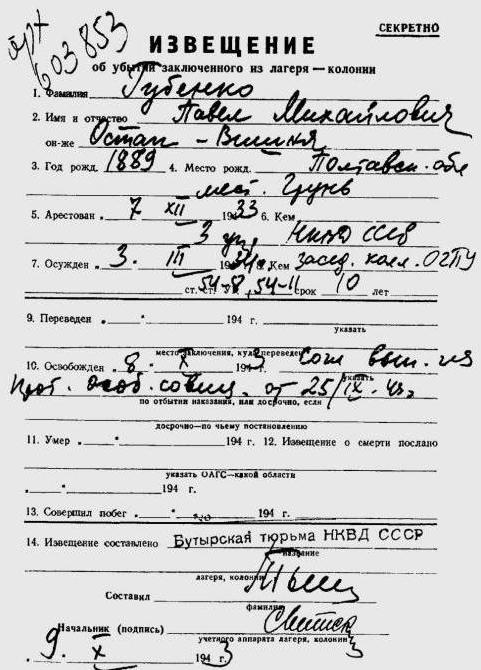 СЕКРЕТНО
603853
ИЗВЕЩЕНИЕ
об убытии заключенного из лагеря — колонии
1. Фамилия Губенко
2. Имя и отчество Павел Михайлович
он-же Остап - Вишня
3. Год рожд. 1889 4. Место рожд. Полтавск. обл
мест. Грунь
5. Арестован „ 7 " XII 1933 6. Кем
3 НКВД СССР
7. Осужден „ 3. " III 1934 8. Кем засед. колл. ОГПУ
ст. ст. УК 54-8, 54-11 срок 10 лет
9. Переведен „ " 194 г.
указать
место заключения, куда переведен
10. Освобожден „ 8 " X 1943
указать
от 25/IX - 43г
по отбытии наказания, или досрочно, если
досрочно—по чьему постановлению
11. Умер „ " 194 г. 12. Извещение о смерти послано
указать ОАГС—какой области
„ " 194 г.
13. Совершил побег „ " 194 г.
14. Извещение составлено Бутырская тюрьма НКВД СССР
название
лагеря, колонии
Составил
фамилия
Начальник (подпись)
учетного аппарата лагеря, колонии
„ 9. " X 1943